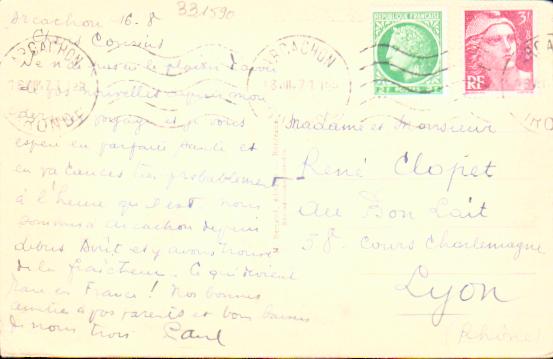 Arcachon 16-8
331590
Chers Cousins
Je n'ai pas eu le plaisir d'avoir
de vos nouvelles depuis mon
voyage et je vous
espère en parfaite santé et
en vacances très probablement
à l'heure qu'il est. Nous
sommes à Arcachon depuis
début Août et y avons trouvé
de la fraîcheur. Ce qui devient
rare en France ! Nos bonnes
amitiés à vos parents et bons baisers
de nous trois Paul
ARCACHON
GIRONDE
ARCACHON
REPUBLIQUE FRANÇAISE
2F POSTES 2F
3F
RF
Madame et Monsieur
René Clopet
au Bon Lait
58 Cours Charlemagne
Lyon
(Rhône)